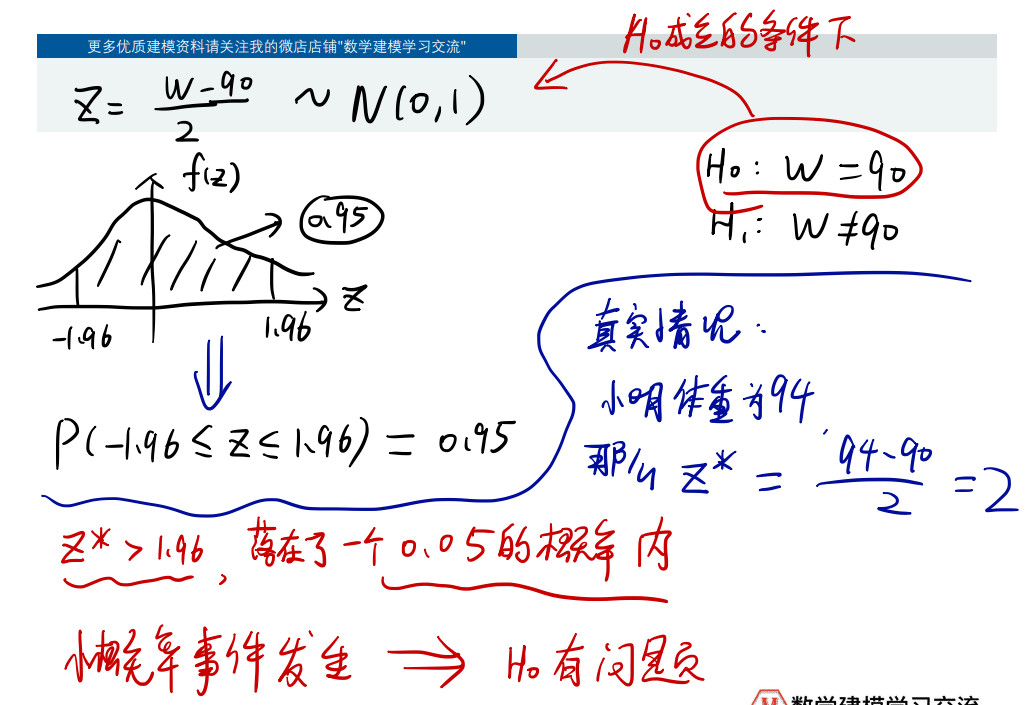 H₀成立的条件下
更多优质建模资料请关注我的微店店铺"数学建模学习交流"
Z = (W-90)/2 ~ N(0,1)
H₀: W = 90
H₁: W ≠ 90
f(z)
0.95
Z
-1.96
1.96
P(-1.96 ≤ Z ≤ 1.96) = 0.95
真实情况:
小明体重为94,
那么 Z* = (94-90)/2 = 2
Z* > 1.96, 落在了一个0.05的概率内
小概率事件发生 ⇒ H₀有问题
数学建模学习交流